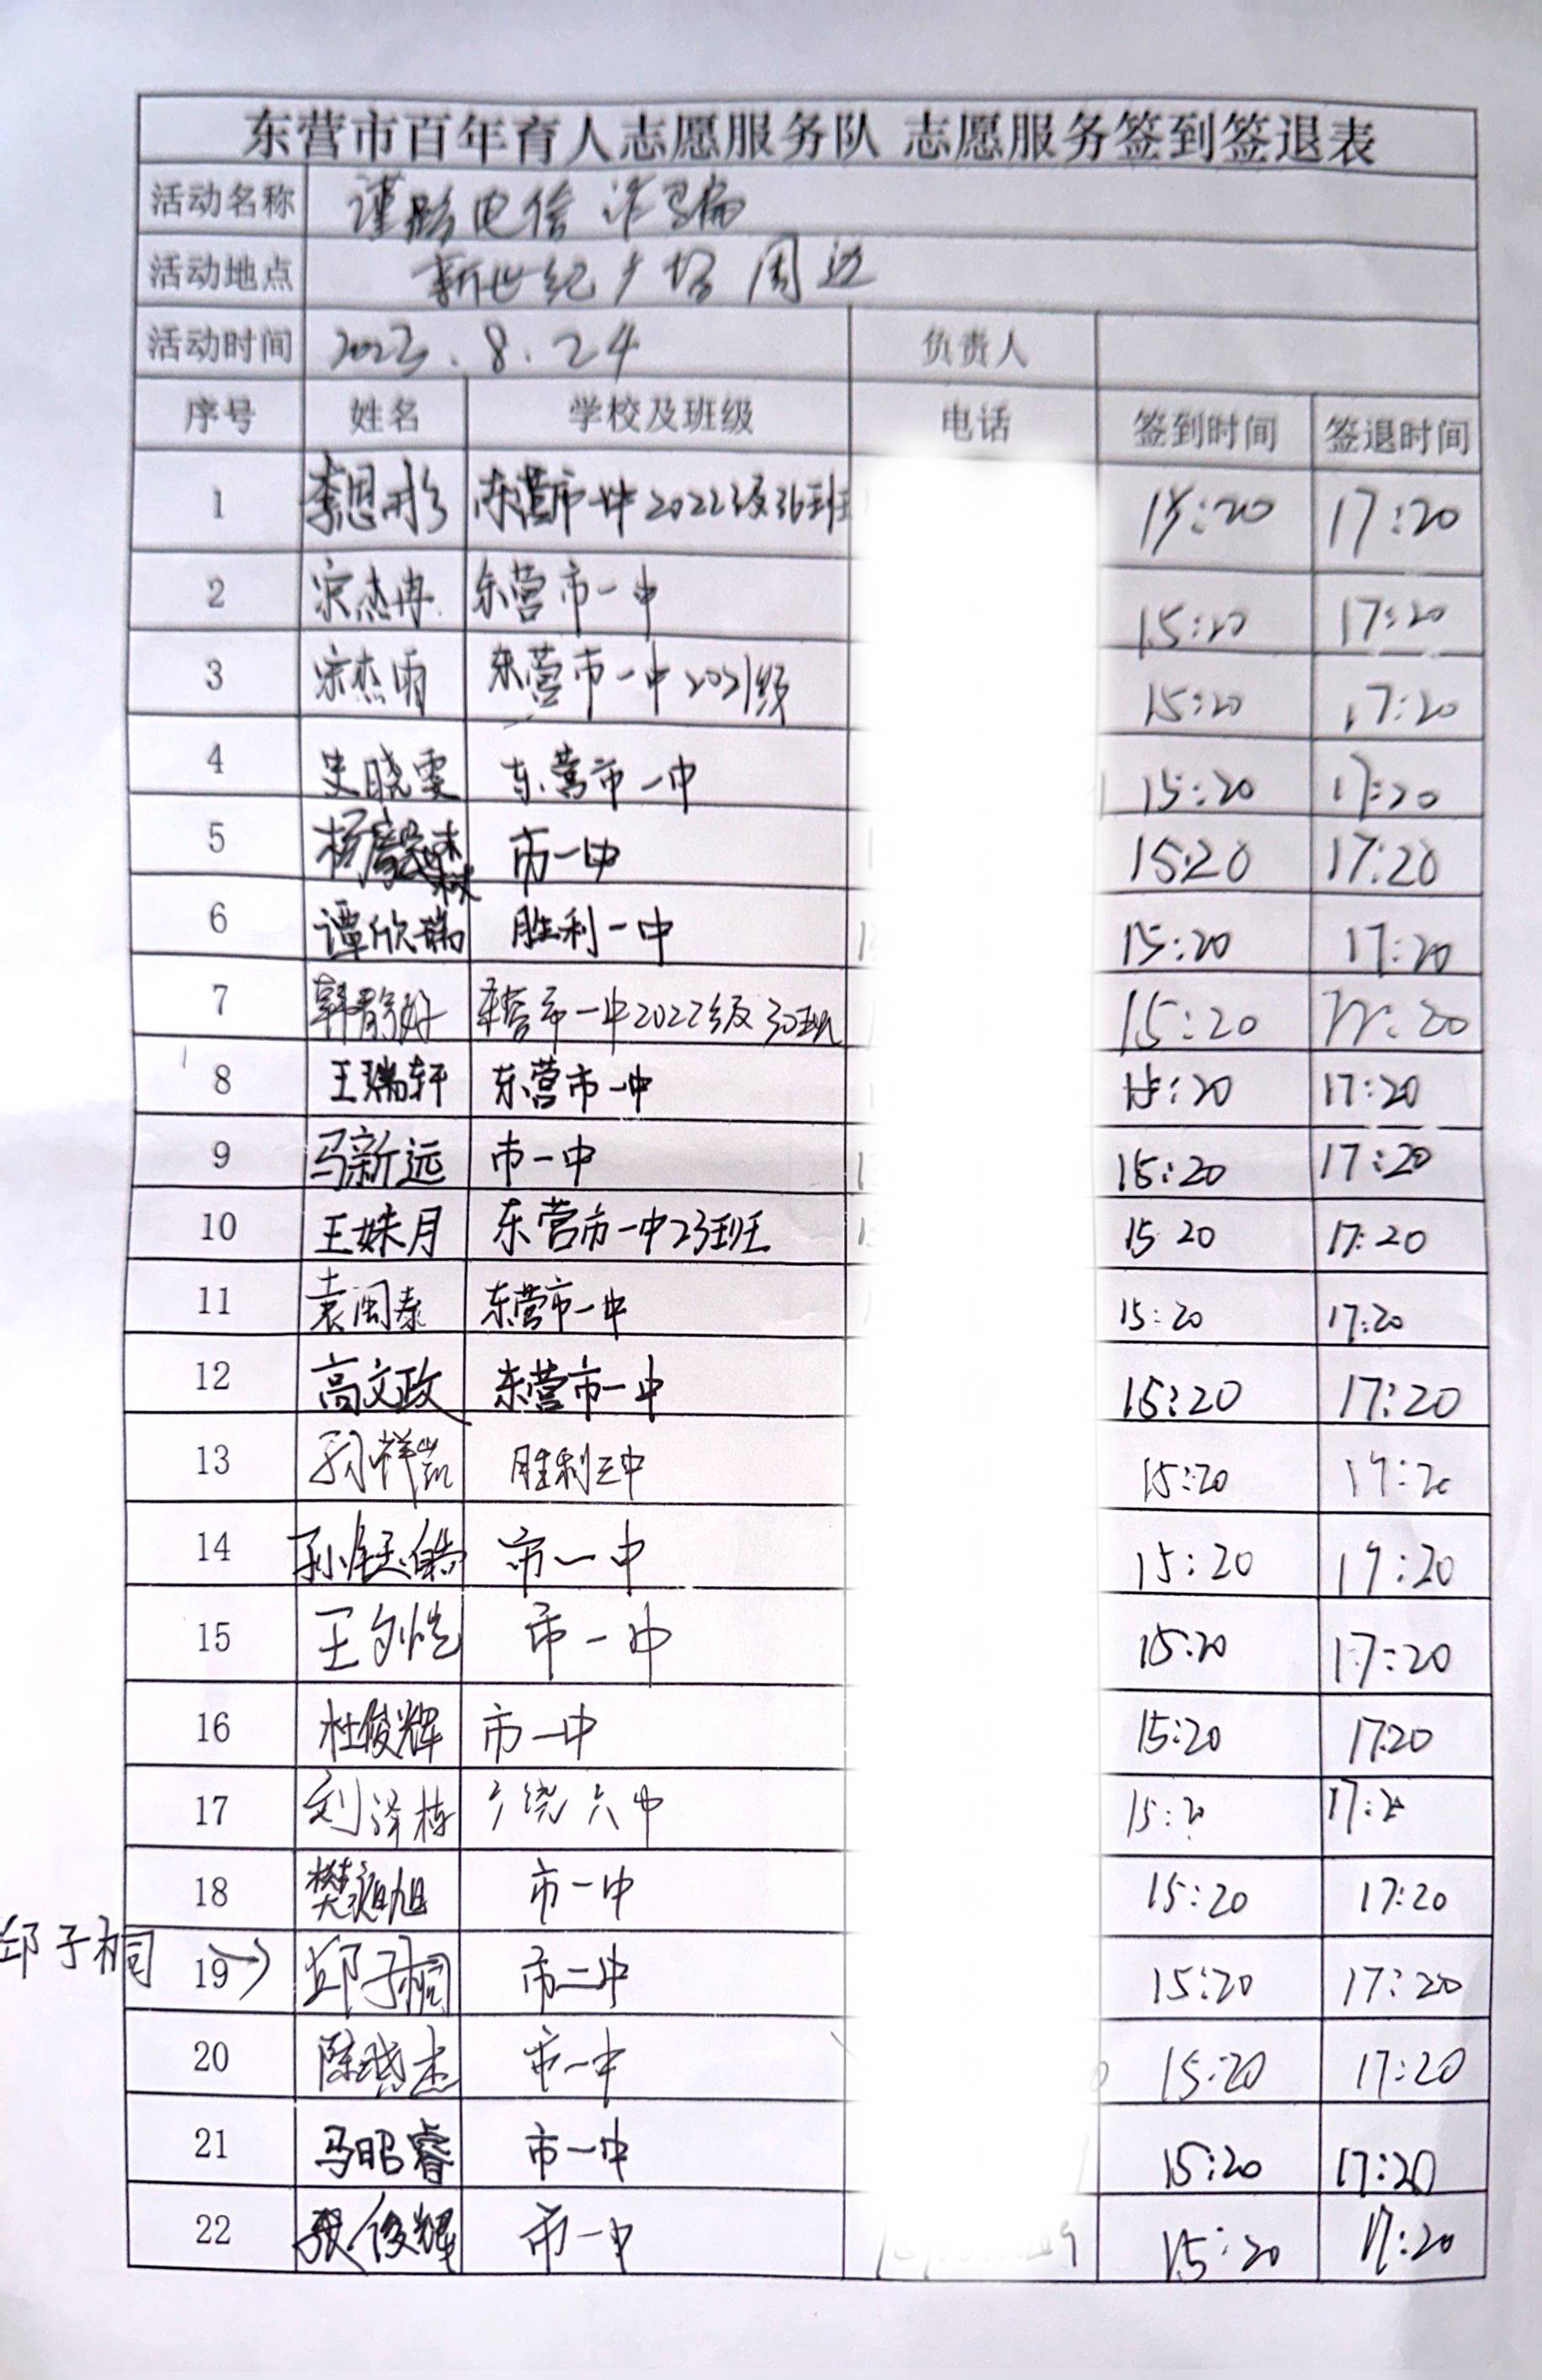 东营市百年育人志愿服务队 志愿服务签到签退表
活动名称 谨防电信诈骗
活动地点 新世纪广场周边
活动时间 2023.8.24 负责人
序号 姓名 学校及班级 电话 签到时间 签退时间
1 李思彤 东营市一中2022级36班 15:20 17:20
2 宋杰冉 东营市一中 15:20 17:20
3 宋杰雨 东营市一中2021级 15:20 17:20
4 史晓雯 东营市一中 15:20 17:20
5 市一中 15:20 17:20
6 谭欣瑞 胜利一中 15:20 17:20
7 韩静好 东营市一中2022级30班 15:20 17:20
8 王瑞轩 东营市一中 15:20 17:20
9 马新远 市一中 15:20 17:20
10 王姝月 东营市一中23班 15 20 17:20
11 袁闽泰 东营市一中 15:20 17:20
12 高文政 东营市一中 15:20 17:20
13 孙祥凯 胜利三中 15:20 17:20
14 市一中 15:20 17:20
15 市一中 15:20 17:20
16 杜俊辉 市一中 15:20 17:20
17 刘泽栋 广饶六中 15:20 17:20
18 市一中 15:20 17:20
邱子桐 19 → 邱子桐 市二中 15:20 17:20
20 市一中 15:20 17:20
21 马昭睿 市一中 15:20 17:20
22 张俊辉 市一中 15:20 17:20